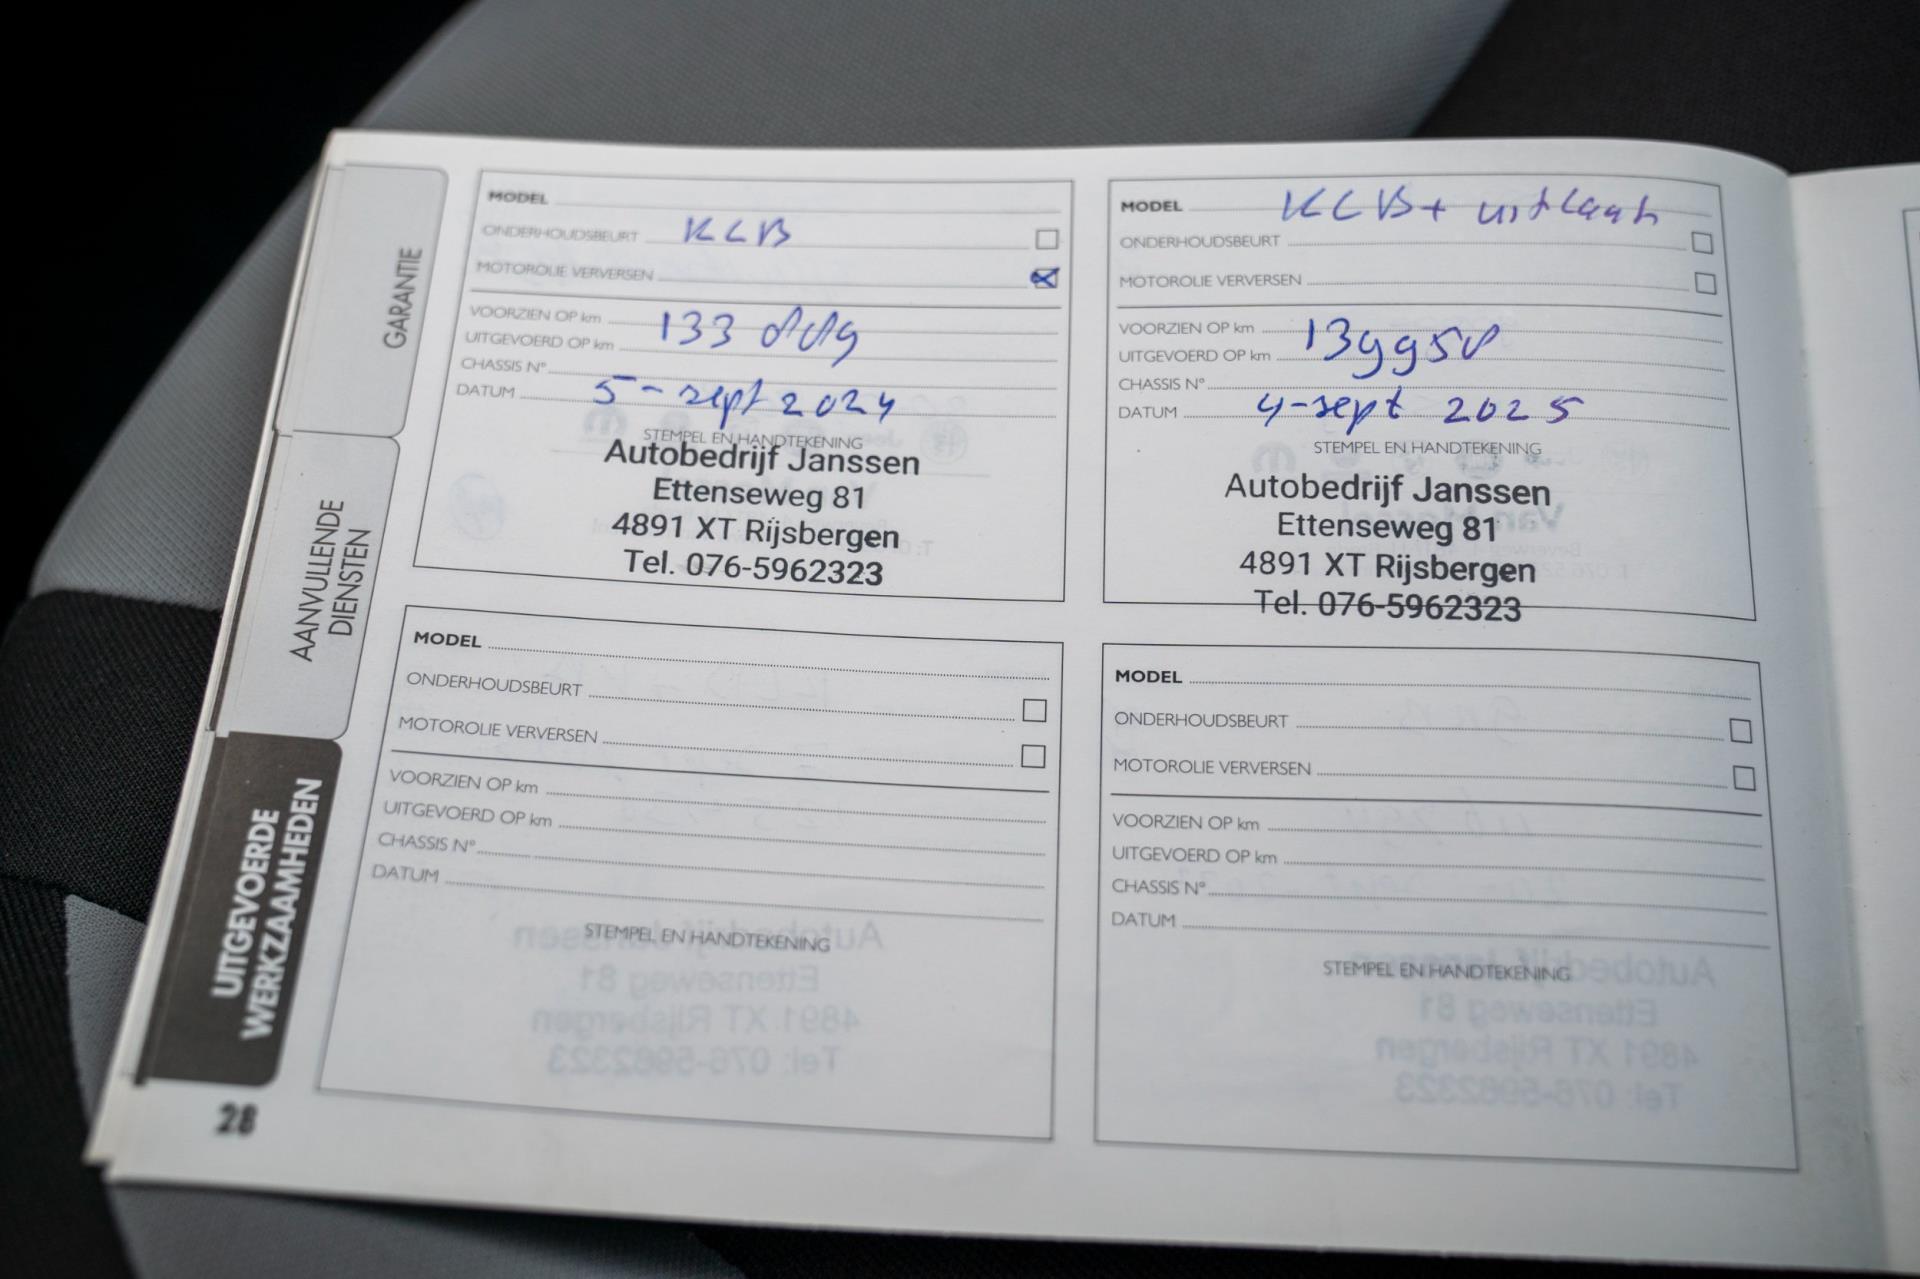 GARANTIE
AANVULLENDE
DIENSTEN
UITGEVOERDE
WERKZAAMHEDEN
28
MODEL
ONDERHOUDSBEURT KLB
MOTOROLIE VERVERSEN
VOORZIEN OP km
UITGEVOERD OP km 133 009
CHASSIS N°
DATUM 5-sept 2024
STEMPEL EN HANDTEKENING
Autobedrijf Janssen
Ettenseweg 81
4891 XT Rijsbergen
Tel. 076-5962323
MODEL KLB + uitlaat
ONDERHOUDSBEURT
MOTOROLIE VERVERSEN
VOORZIEN OP km
UITGEVOERD OP km 139950
CHASSIS N°
DATUM 4-sept 2025
STEMPEL EN HANDTEKENING
Autobedrijf Janssen
Ettenseweg 81
4891 XT Rijsbergen
Tel. 076-5962323
MODEL
ONDERHOUDSBEURT
MOTOROLIE VERVERSEN
VOORZIEN OP km
UITGEVOERD OP km
CHASSIS N°
DATUM
STEMPEL EN HANDTEKENING
MODEL
ONDERHOUDSBEURT
MOTOROLIE VERVERSEN
VOORZIEN OP km
UITGEVOERD OP km
CHASSIS N°
DATUM
STEMPEL EN HANDTEKENING